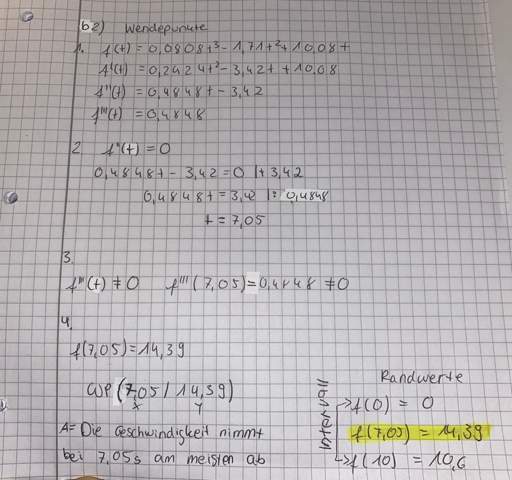 b2) Wendepunkte
1. f(t) = 0,0808t³ - 1,71t² + 10,08t
f'(t) = 0,2424t² - 3,42t + 10,08
f''(t) = 0,4848t - 3,42
f'''(t) = 0,4848
2. f''(t) = 0
0,4848t - 3,42 = 0 |+ 3,42
0,4848t = 3,42 |: 0,4848
t = 7,05
3.
f'''(t) ≠ 0 f'''(7,05) = 0,4848 ≠ 0
4.
f(7,05) = 14,39
WP (7,05 / 14,39)
x y
A= Die Geschwindigkeit nimmt
bei 7,05s am meisten ab
Randwerte
→ f(0) = 0
f(7,05) = 14,39
→ f(10) = 10,6